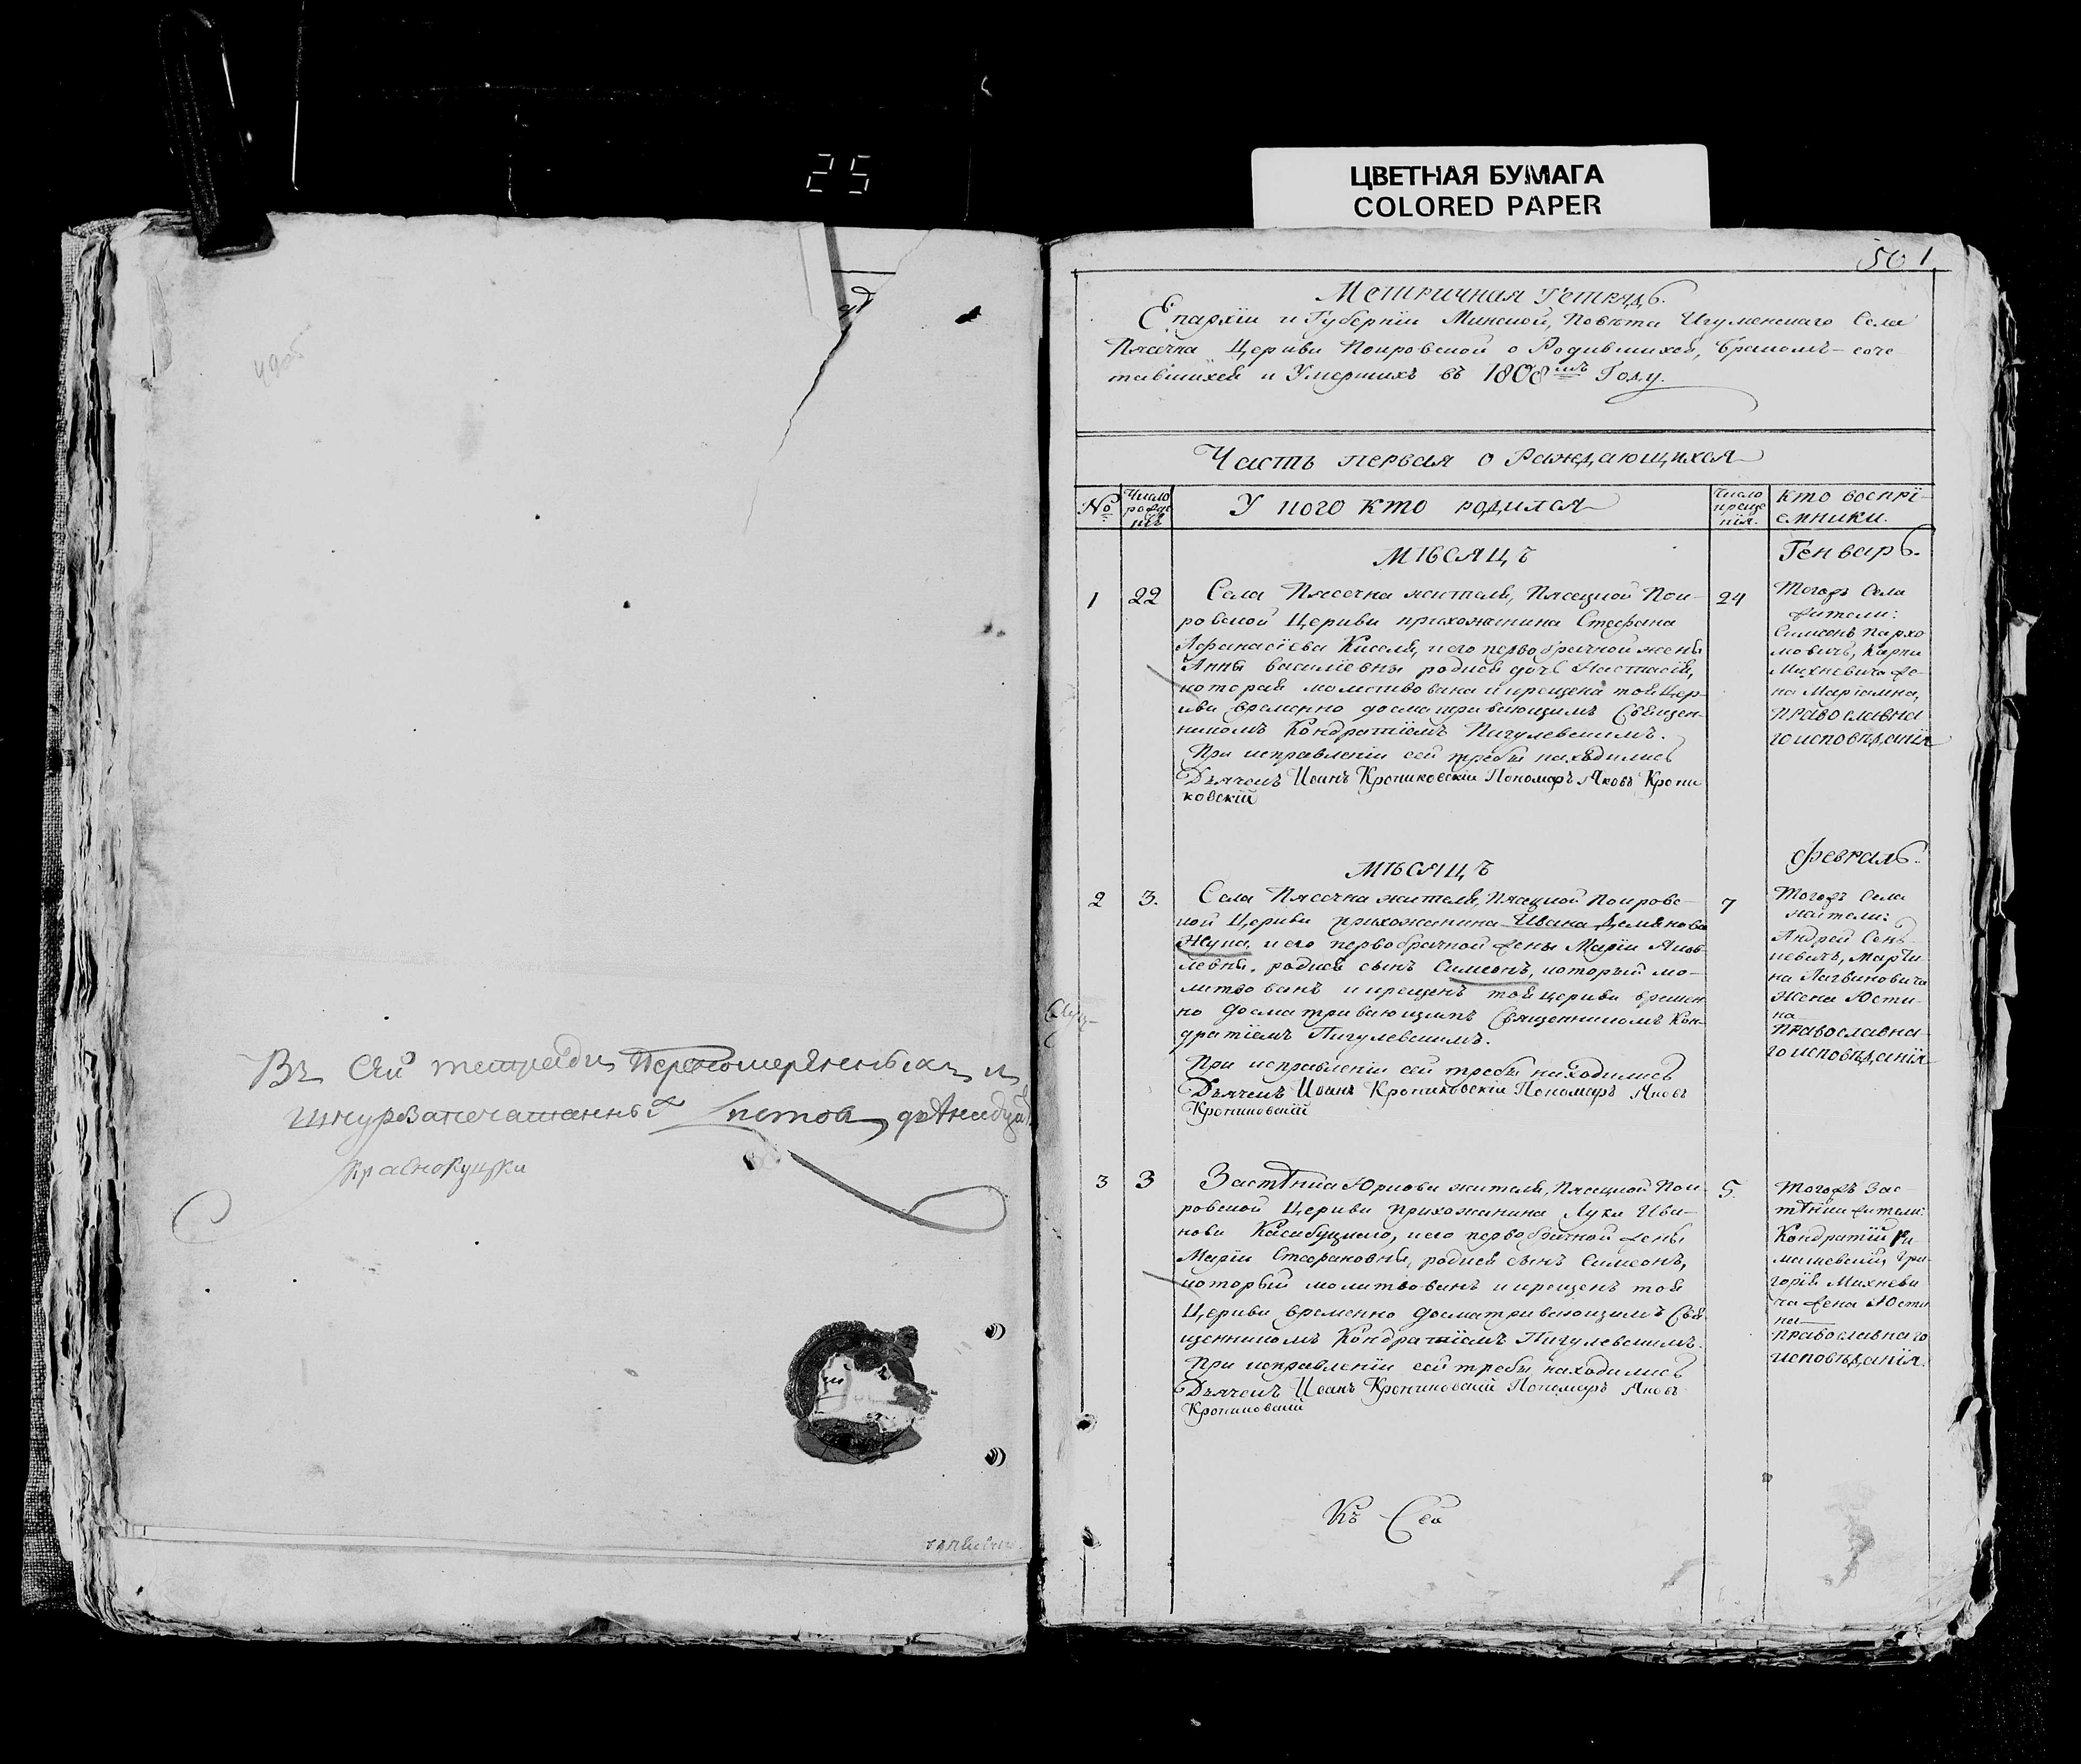 25
ЦВЕТНАЯ БУМАГА
COLORED PAPER
501
Метричная Тетрадь.
Епархіи и Губерніи Минской, Повѣта Игуменскаго Села
Пясечна Церкви Покровской о Родившихся, бракомъ-соче
тавшихся и Умершихъ въ 1808мъ Году.
Часть первая о Раждающихся
№ Число рожденія У кого кто родился Число крещенія. Кто воспрі-
емники.
Мѣсяцъ Генварь.
1 22 24
Села Пясечна жителя, Пясецкой Пок-
ровской Церкви прихожанина Стефана
Афанасіева Киселя, и его первобрачной жены
Анны Василіевны родися дочь Настасія,
которая молитвована и крещена тоя Цер-
кви временно досматривающимъ Священ-
никомъ Кондратіемъ Пигулевскимъ.
При исправленіи сей требы находились
Дьячекъ Іванъ Крониковскій Пономаръ Яковъ Крони
ковскій
Тогожъ Села
жители:
Симеонъ Пархо
мовичъ, Карпа
Михневича же-
на Маріамна,
православна
го исповѣданія
Мѣсяцъ Февраль.
2 3. 7
Села Пясечна жителя, Пясецкой Покровс-
кой Церкви прихожанина Ивана Демянова
Жука, и его первобрачной жены Маріи Яков-
левны, родися сынъ Симеонъ, который мо-
литвованъ и крещенъ тоя церкви времен
но досматривающимъ Священникомъ Кон-
дратіемъ Пигулевскимъ.
При исправленіи сей требы находились
Дьячекъ Іванъ Крониковскій Пономаръ Яковъ
Крониковскій
Тогожъ Села
жители:
Андрей Сень
кевичъ, Марти
на Логвиновича
жена Юсти-
на
православна
го исповѣданія
3 3 5.
Застѣнка Юркова жителя, Пясецкой Пок
ровской Церкви прихожанина Луки Ива-
нова Касабуцкаго, и его первобрачной жены
Маріи Стефановны, родися сынъ Симеонъ,
который молитвованъ и крещенъ тоя
Церкви временно досматривающимъ Свя
щенникомъ Кондратіемъ Пигулевскимъ.
При исправленіи сей требы находились
Дьячекъ Іванъ Крониковскій Пономаръ Яковъ
Крониковскій
Тогожъ Зас-
тѣнка жители:
Кондратій
Гри
горія Михневи
ча жена Юсти
на
православнаго
исповѣданія.
Въ сей тетради перенумерованныхъ и
шнурозапечатанныхъ листовъ